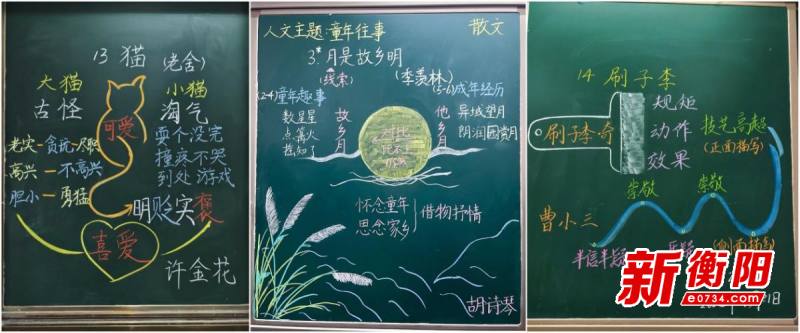 13 猫
(老舍)
大猫
古怪
小猫
淘气
可爱
老实—贪玩—尽职
高兴—不高兴
胆小—勇猛
耍个没完
撞疼不哭
到处游戏
明贬实褒
喜爱
许金花
人文主题·童年往事
散文
3*月是故乡明
(线索)
(季羡林)
(2-4)童年趣事
(5-6)成年经历
数星星
点篝火
故乡月
对比
他乡月
异域望月
朗润园赏月
怀念童年
思念家乡
借物抒情
胡诗琴
14 刷子李
刷子李·奇
规矩
动作
效果
技艺高超
(正面描写)
崇敬
崇敬
曹小三
半信半疑
(侧面描写)
新衡阳
e0734.com